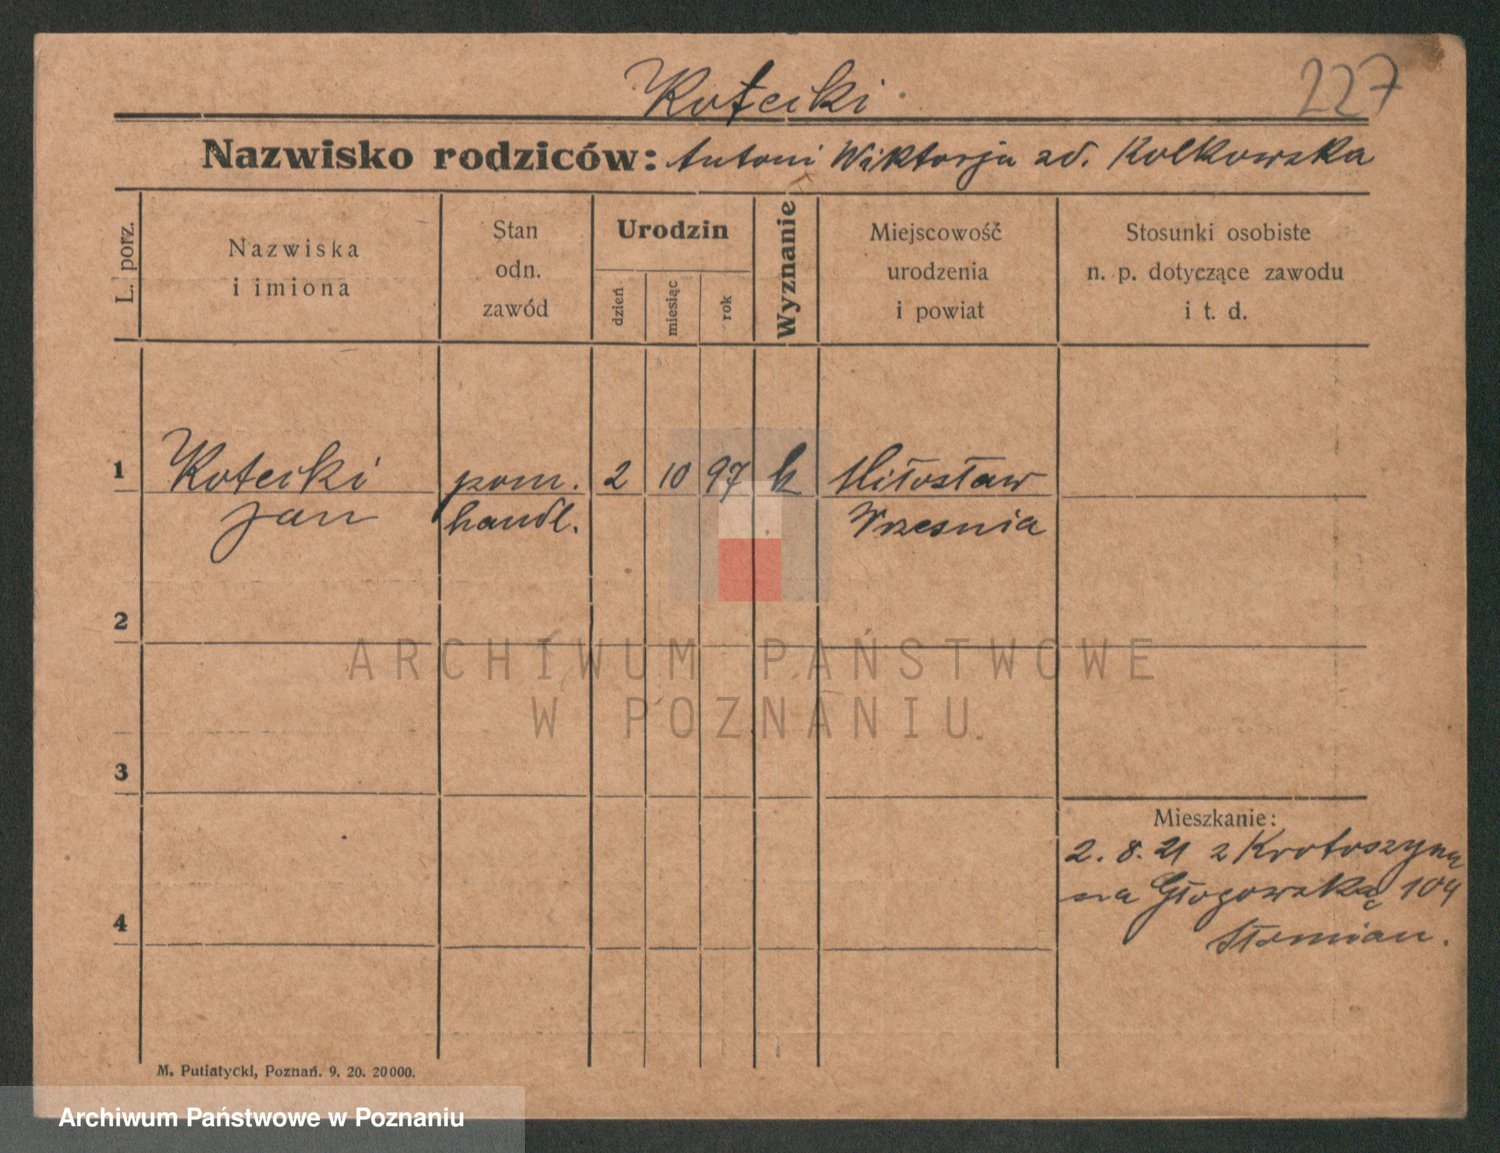 Kotecki
227
Nazwisko rodziców: Antoni Wiktorja zd. Kolkowska
L. porz.
Nazwiska
i imiona
Stan
odn.
zawód
Urodzin
dzień
miesiąc
rok
Wyznanie
Miejscowość
urodzenia
i powiat
Stosunki osobiste
n. p. dotyczące zawodu
i t. d.
1 Kotecki pom. 2 10 97 k Miłosław
Jan handl. Wrzesnia
2
ARCHIWUM PAŃSTWOWE
W POZNANIU
3
Mieszkanie:
2. 8. 21 z Krotoszyna
na Głogowską 104
4
M. Putiatycki, Poznań. 9. 20. 20000.
Archiwum Państwowe w Poznaniu